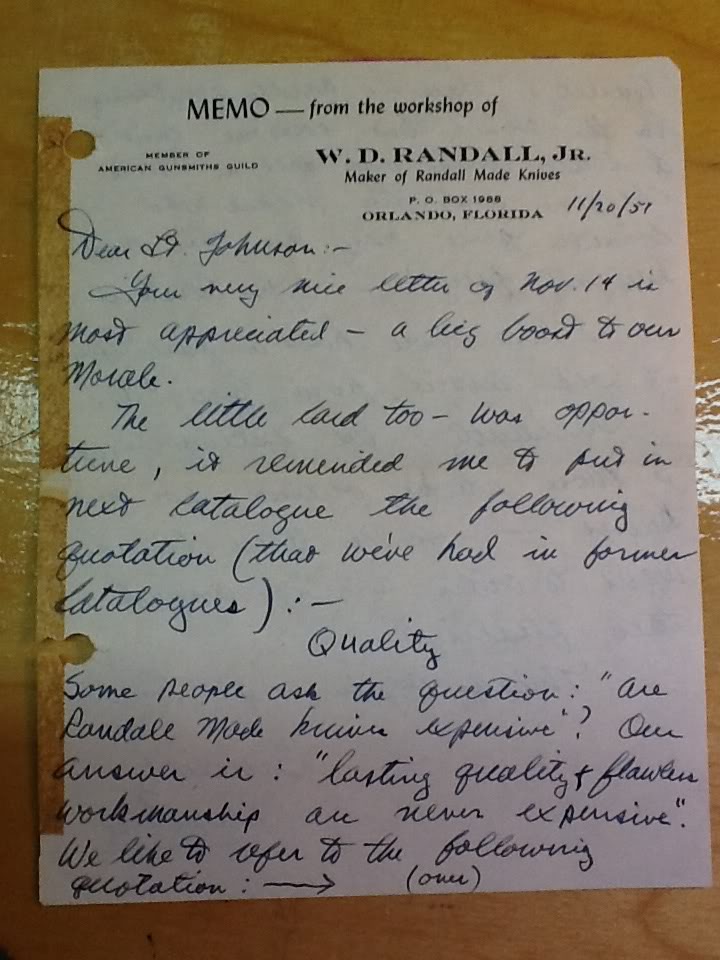 MEMO — from the workshop of
MEMBER OF
AMERICAN GUNSMITHS GUILD
W. D. RANDALL, JR.
Maker of Randall Made Knives
P. O. BOX 1988
ORLANDO, FLORIDA
11/20/57
Dear Lt. Johnson:-
Your very nice letter of Nov. 14 is
most appreciated - a big boost to our
Morale.
The little card too - was oppor-
tune, it remended me to put in
next catalogue the following
quotation (that we've had in former
catalogues) :-
Quality
Some people ask the question: "are
Randall Made knives expensive"? Our
answer is: "lasting quality & flawless
workmanship are never expensive".
We like to refer to the following
quotation: → (over)